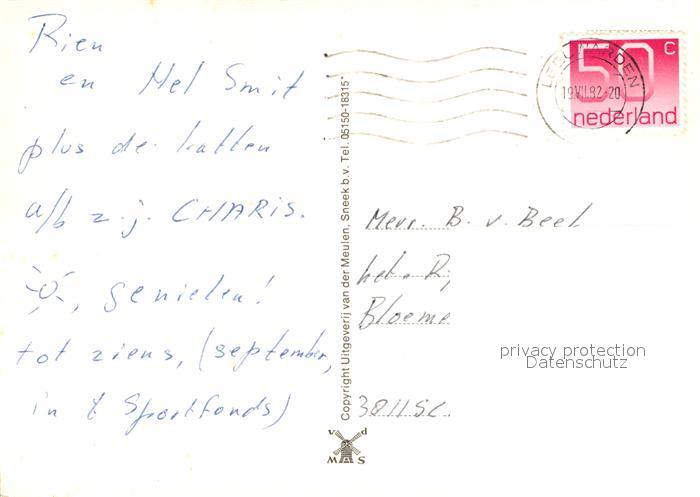 Rien
en Mel Smit
plus de katten
a/b z.j. CHARIS.
, genieten!
tot ziens, (september,
in 't Sportfonds)
Copyright Uitgeverij van der Meulen, Sneek b.v. Tel. 05150-18315*
v d
M S
LEEUWARDEN
19.VII.82-20
50 C
nederland
Mevr. B. v. Beek
het. R,
Bloeme
3811SC.
privacy protection
Datenschutz